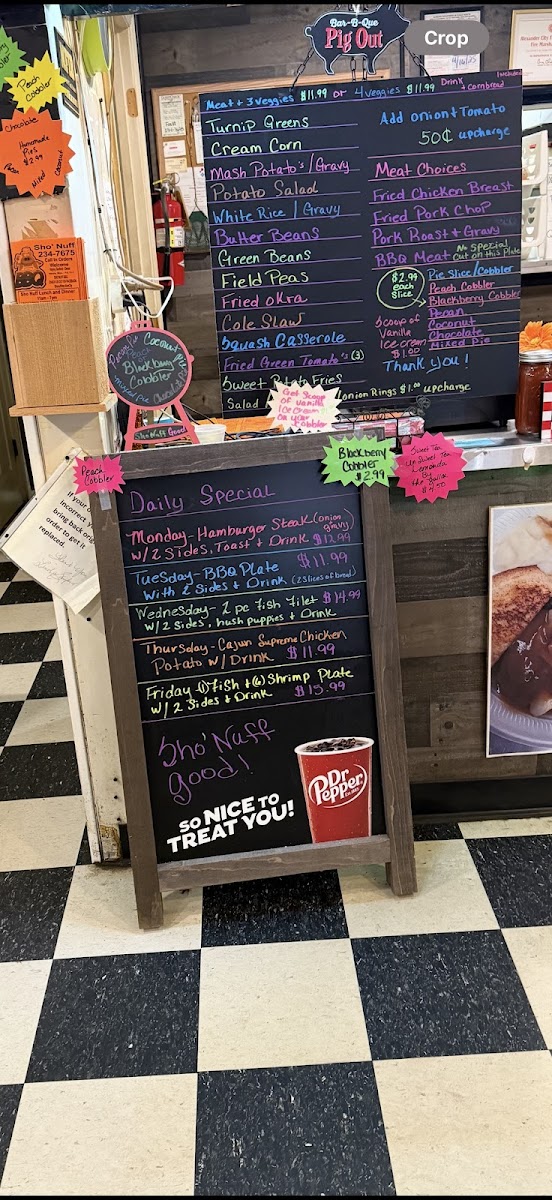 Bar-B-Que
Pig Out
Crop
Meat + 3 Veggies $11.99 or 4 veggies $11.99 Drink + Cornbread Included
Turnip Greens
Cream Corn
Mash Potato's / Gravy
Potato Salad
White Rice / Gravy
Butter Beans
Green Beans
Field Peas
Fried Okra
Cole Slaw
Squash Casserole
Fried Green Tomato's (3)
Sweet Potato Fries
Salad
onion Rings $1.00 upcharge
Add onion + Tomato
50¢ upcharge
Meat Choices
Fried Chicken Breast
Fried Pork Chop
Pork Roast + Gravy
BBQ Meat No Special Cut on this Plate
$2.99
each
Slice
Pie Slice/Cobbler
Peach Cobbler
Blackberry Cobbler
Pecan
Coconut
Chocolate
Mixed Pie
Scoop of
Vanilla
Ice cream
$1.00
Thank you!
Peach
Cobbler
Chocolate
Homemade
Pies
$2.99
Pecan
Mixed
Coconut
Sho' Nuff
234-7675
Call in Orders
Welcome
Sho Nuff Lunch and Diner
Coconut
Blackberry
Cobbler
Sho Nuff Good
Get Scoop
of Vanilla
Ice Cream
on your
Cobbler
Peach
Cobbler
Blackberry
Cobbler
$2.99
Sweet Tea
Un Sweet Tea
Lemonade
By
the Gallon
If your o
incorrect
bring back orig
order to get it
replaced.
Daily Special
Monday - Hamburger Steak (onion gravy)
w/ 2 Sides, Toast + Drink $12.99
Tuesday - BBQ Plate $11.99
With 2 Sides + Drink (2 slices of bread)
Wednesday - 2 pc Fish Filet $14.99
w/ 2 sides, hush puppies + Drink
Thursday - Cajun Supreme Chicken
Potato w/ Drink $11.99
Friday (1) Fish + (6) Shrimp Plate
w/ 2 Sides + Drink $15.99
Sho' Nuff
good!
SO NICE TO
TREAT YOU!
Dr
Pepper